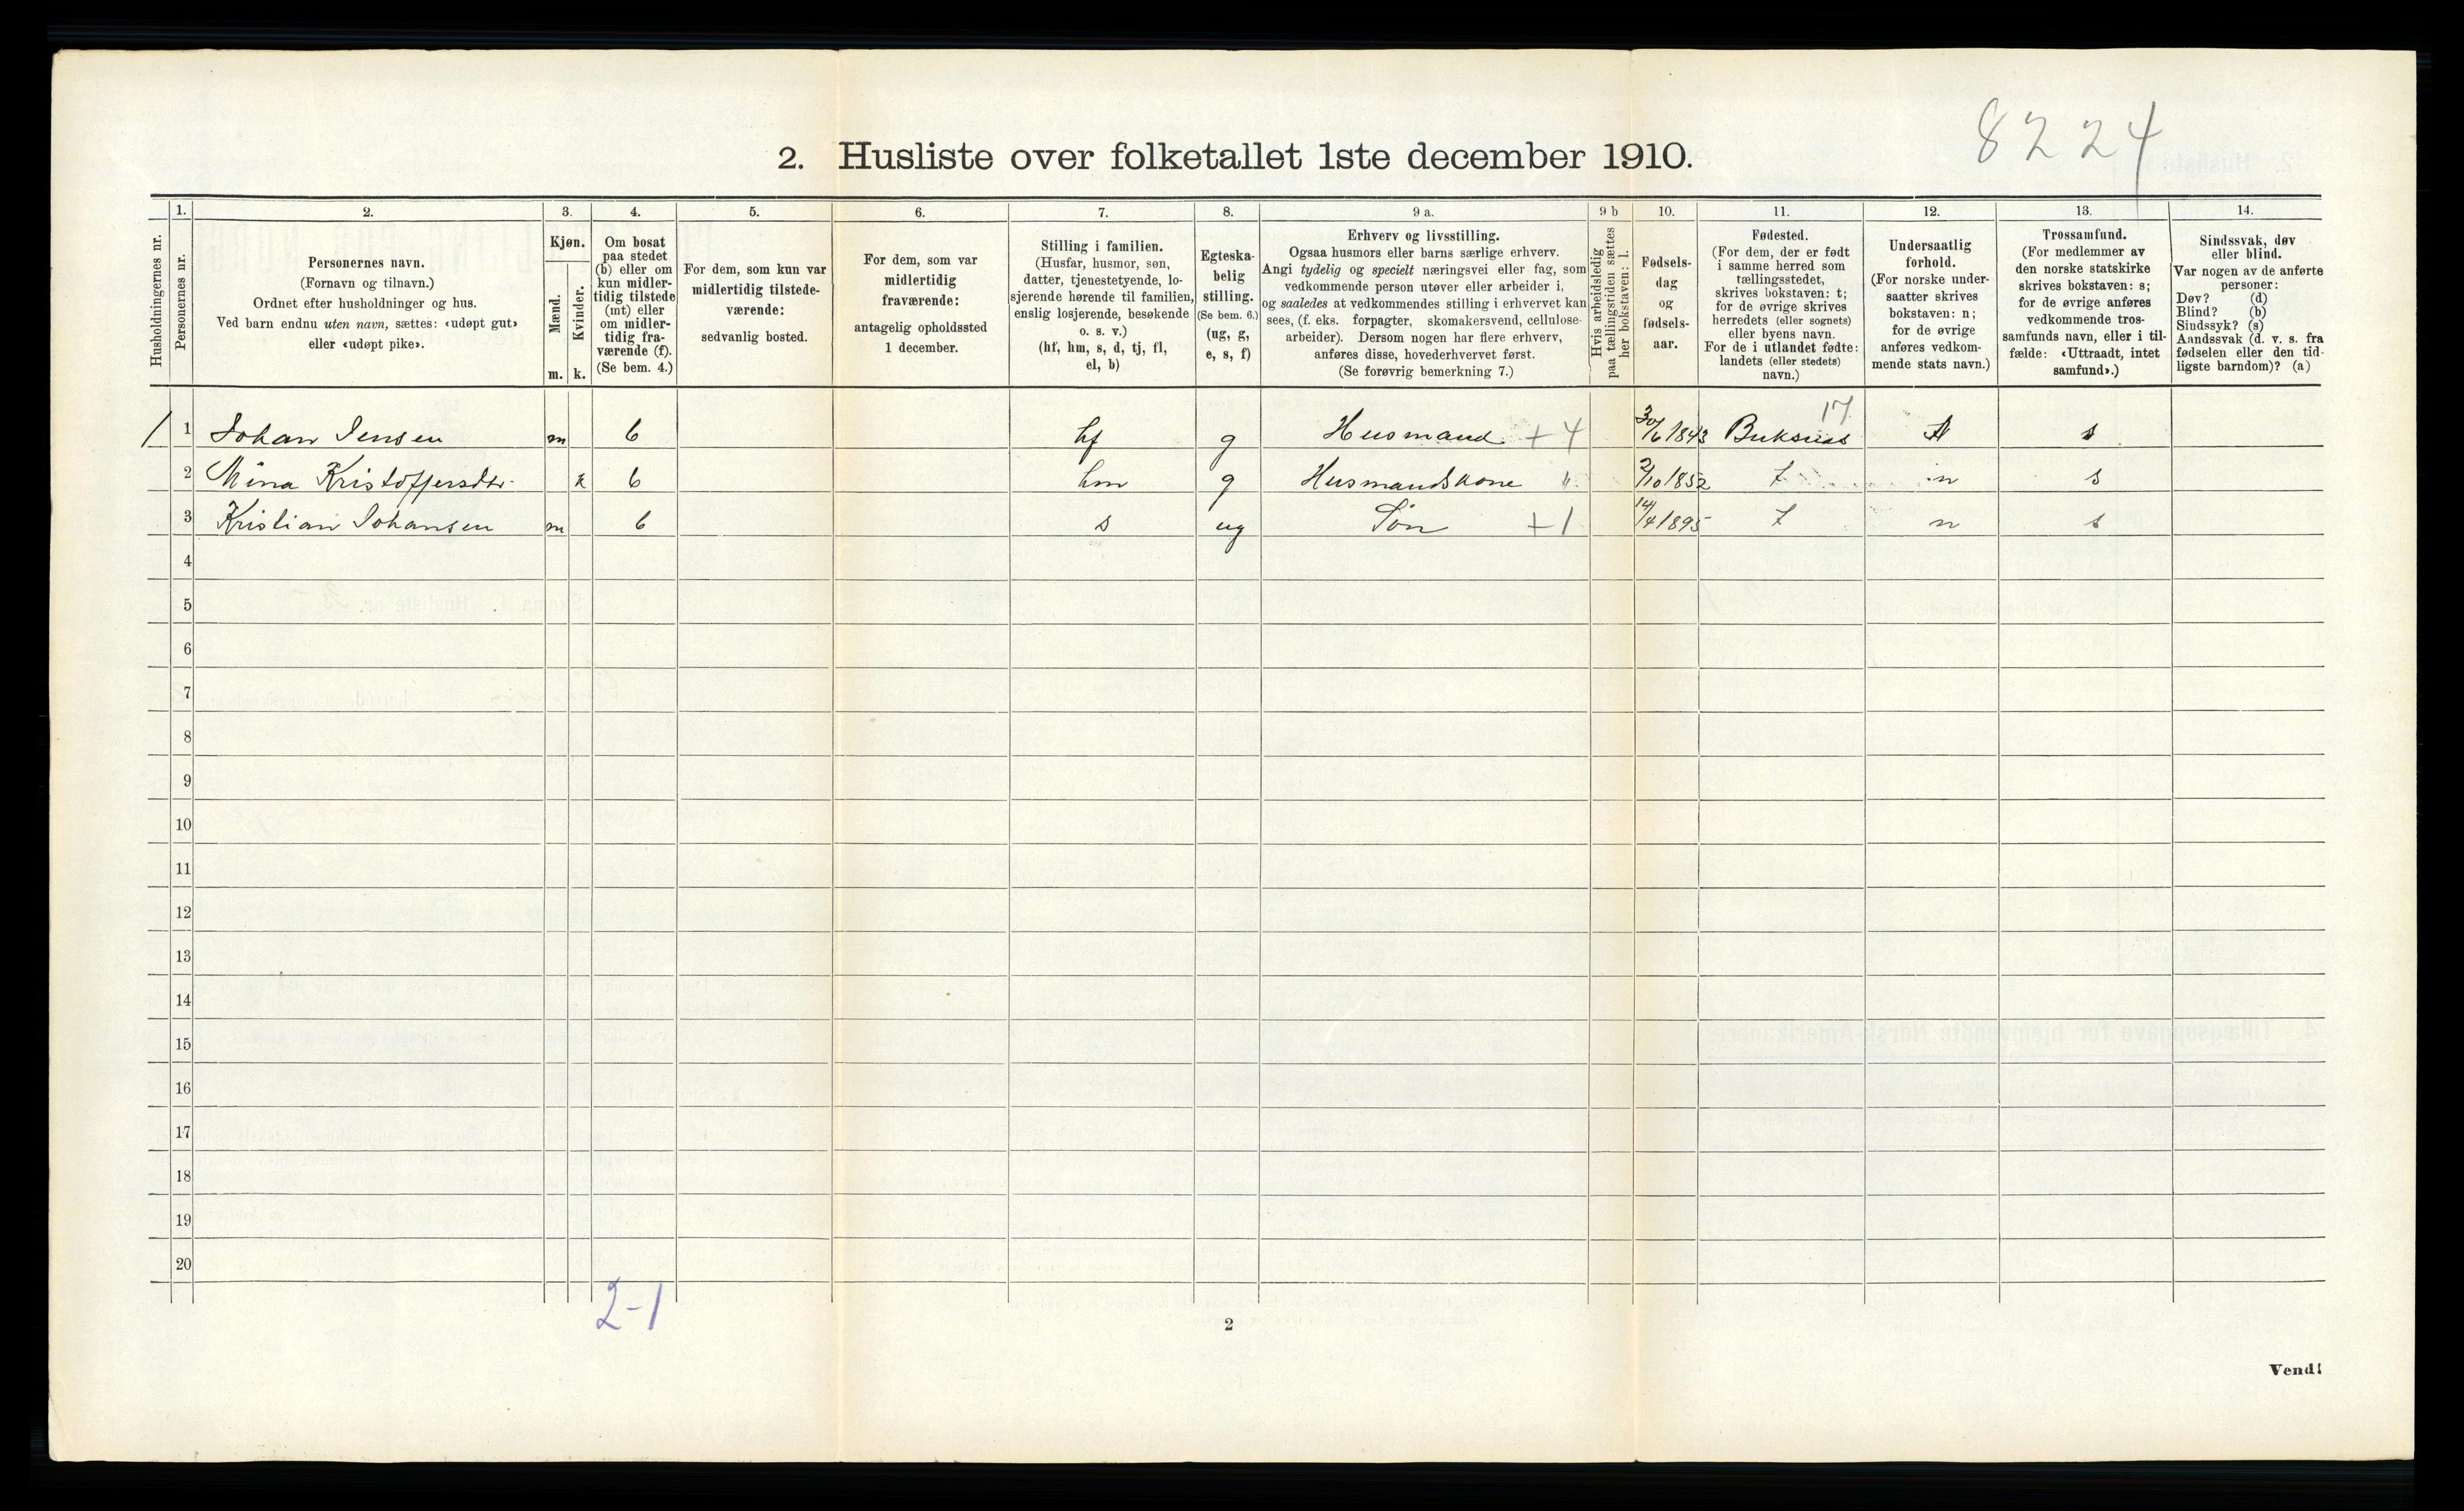 8224
2. Husliste over folketallet 1ste december 1910.
Husholdningernes nr.
1.
Personernes nr.
2.
Personernes navn.
(Fornavn og tilnavn.)
Ordnet efter husholdninger og hus.
Ved barn endnu uten navn, sættes: «udøpt gut»
eller «udøpt pike».
3.
Kjøn.
Mænd.
Kvinder.
m. k.
4.
Om bosat
paa stedet
(b) eller om
kun midler-
tidig tilstede
(mt) eller
om midler-
tidig fra-
værende (f).
(Se bem. 4.)
5.
For dem, som kun var
midlertidig tilstede-
værende:
sedvanlig bosted.
6.
For dem, som var
midlertidig
fraværende:
antagelig opholdssted
1 december.
7.
Stilling i familien.
(Husfar, husmor, søn,
datter, tjenestetyende, lo-
sjerende hørende til familien,
enslig losjerende, besøkende
o. s. v.)
(hf, hm, s, d, tj, fl,
el, b)
8.
Egteska-
belig
stilling.
(Se bem. 6.)
(ug, g,
e, s, f)
9 a.
Erhverv og livsstilling.
Ogsaa husmors eller barns særlige erhverv.
Angi tydelig og specielt næringsvei eller fag, som
vedkommende person utøver eller arbeider i,
og saaledes at vedkommendes stilling i erhvervet kan
sees, (f. eks. forpagter, skomakersvend, cellulose-
arbeider). Dersom nogen har flere erhverv,
anføres disse, hovederhvervet først.
(Se forøvrig bemerkning 7.)
9 b
Hvis arbeidsledig
paa tællingstiden sættes
her bokstaven: l.
10.
Fødsels-
dag
og
fødsels-
aar.
11.
Fødested.
(For dem, der er født
i samme herred som
tællingsstedet,
skrives bokstaven: t;
for de øvrige skrives
herredets (eller sognets)
eller byens navn.
For de i utlandet fødte:
landets (eller stedets)
navn.)
12.
Undersaatlig
forhold.
(For norske under-
saatter skrives
bokstaven: n;
for de øvrige
anføres vedkom-
mende stats navn.)
13.
Trossamfund.
(For medlemmer av
den norske statskirke
skrives bokstaven: s;
for de øvrige anføres
vedkommende tros-
samfunds navn, eller i til-
fælde: «Uttraadt, intet
samfund».)
14.
Sindssvak, døv
eller blind.
Var nogen av de anførte
personer:
Døv? (d)
Blind? (b)
Sindssyk? (s)
Aandssvak (d. v. s. fra
fødselen eller den tid-
ligste barndom)? (a)
17
1 1 Johan Jensen m b hf g Husmand + 4 30/6 1843 Buksnes s
2 Mina Kristoffersdtr. k b hm g Husmandskone " 2/10 1852 t n s
3 Kristian Johansen m b s ug Søn + 1 14/4 1895 t n s
4
5
6
7
8
9
10
11
12
13
14
15
16
17
18
19
20
2-1
2
Vend!